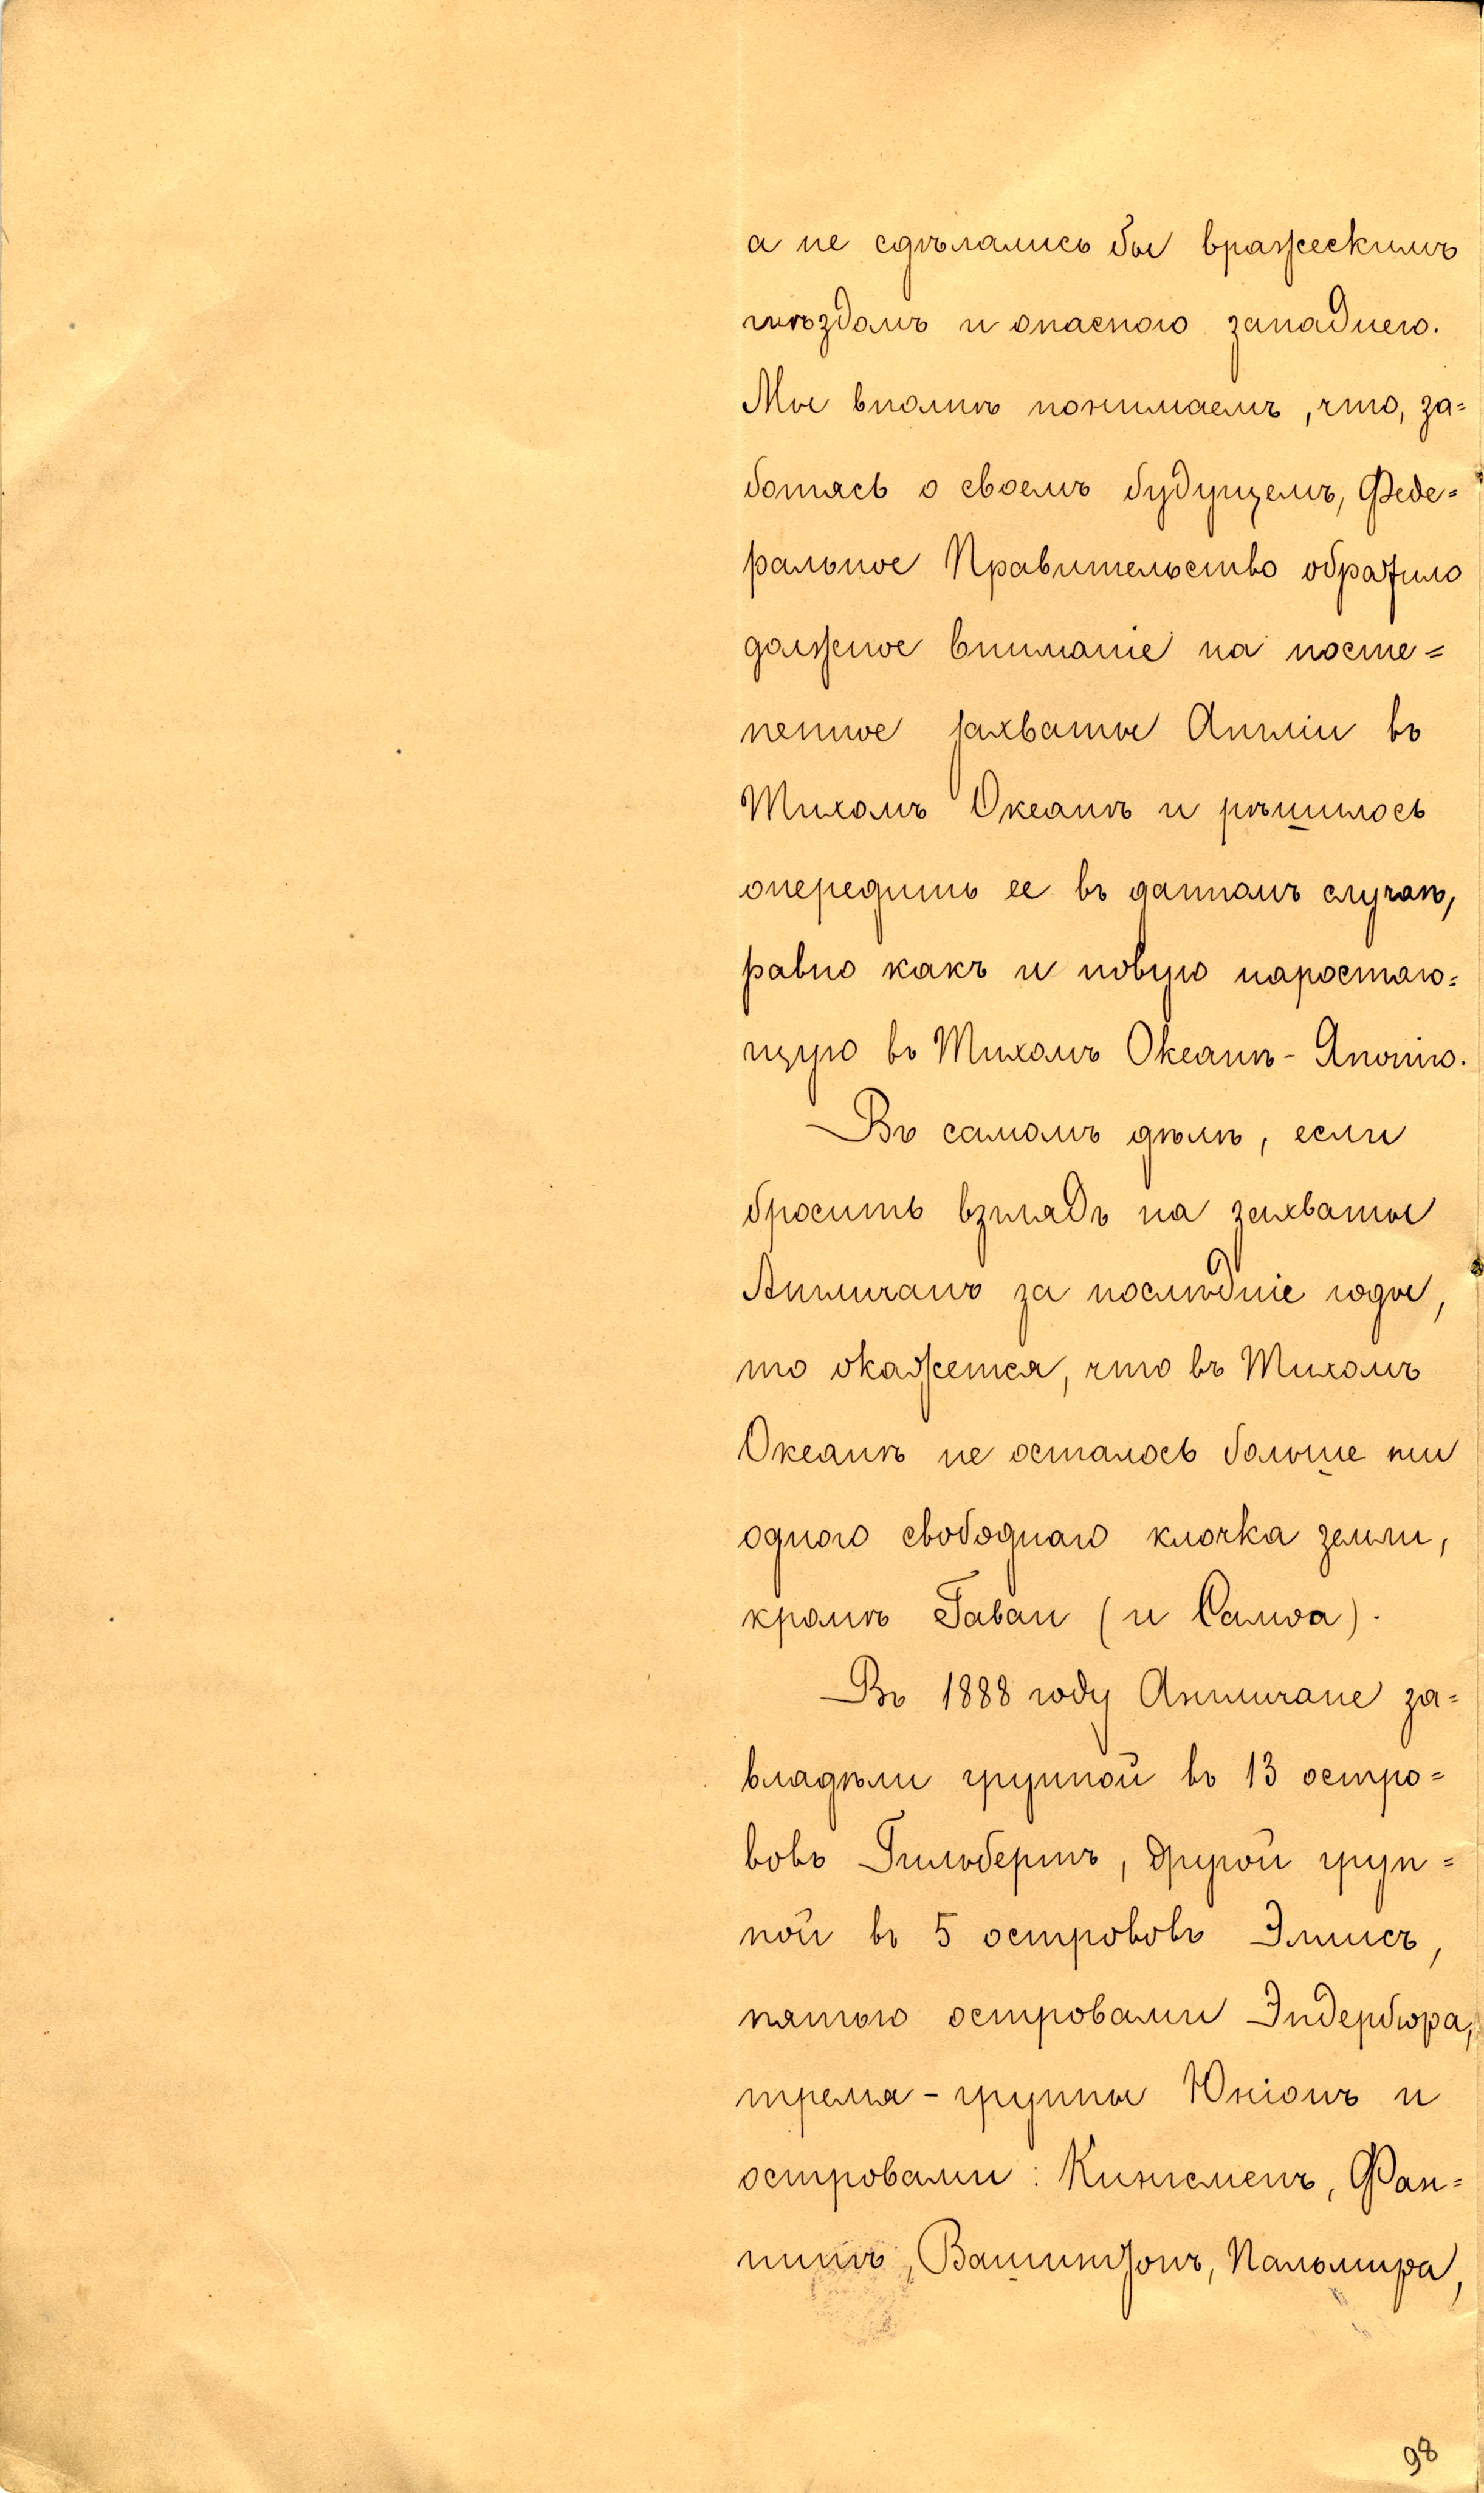 а не сдѣлались бы вражескимъ
гнѣздомъ и опасною западнею.
Мы вполнѣ понимаемъ, что, за=
ботясь о своемъ будущемъ, Феде=
ральное Правительство обратило
должное вниманіе на посте=
пенные захваты Англіи въ
Тихомъ Океанѣ и рѣшилось
опередить ее въ данномъ случаѣ,
равно какъ и новую наростаю=
щую въ Тихомъ Океанѣ - Японію.
Въ самомъ дѣлѣ, если
бросить взглядъ на захваты
Англичанъ за послѣдніе годы,
то окажется, что въ Тихомъ
Океанѣ не осталось больше ни
одного свободнаго клочка земли,
кромѣ Гаваи (и Самоа).
Въ 1888 году Англичане за=
владѣли группой въ 13 остро=
вовъ Гильбертъ, другой груп=
пой въ 5 острововъ Элисъ,
пятью островами Эндербюра,
тремя - группы Юніонъ и
островами: Кингсменъ, Фан=
нингъ, Вашингтонъ, Пальмира,
98